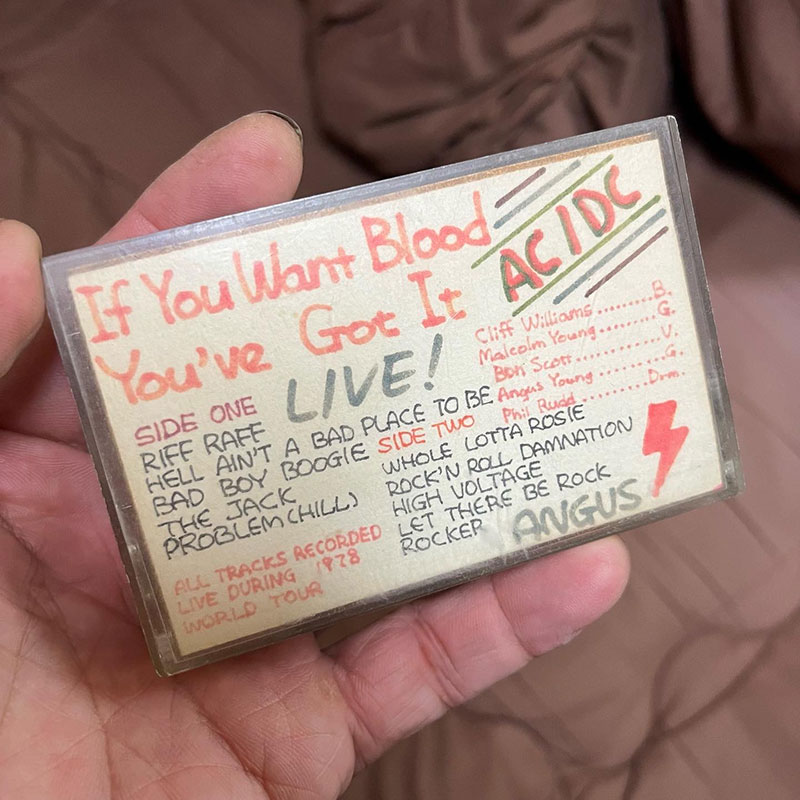 If You Want Blood
You've Got It
LIVE!
AC/DC
Cliff Williams..........B.
Malcolm Young.........G.
Bon Scott...............V.
Angus Young...........G.
Phil Rudd..........Drm.
SIDE ONE
RIFF RAFF
HELL AIN'T A BAD PLACE TO BE
BAD BOY BOOGIE
THE JACK
PROBLEM (HILL)
SIDE TWO
WHOLE LOTTA ROSIE
ROCK'N ROLL DAMNATION
HIGH VOLTAGE
LET THERE BE ROCK
ROCKER
ANGUS
ALL TRACKS RECORDED
LIVE DURING 1978
WORLD TOUR